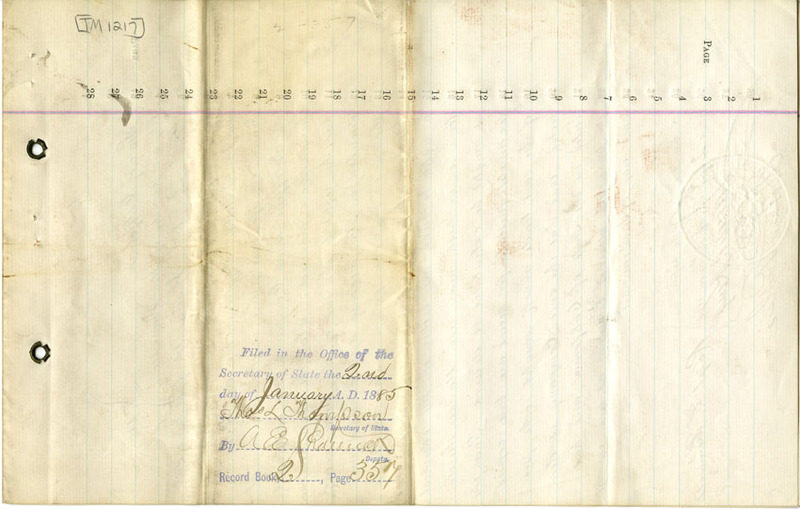 [TM 1217]
PAGE
1
2
3
4
5
6
7
8
9
10
11
12
13
14
15
16
17
18
19
20
21
22
23
24
25
26
27
28
Filed in the Office of the
Secretary of State the 2nd
day of January A. D. 1885
Thos L Thompson
Secretary of State.
By A E
Deputy.
Record Book 2, Page 357